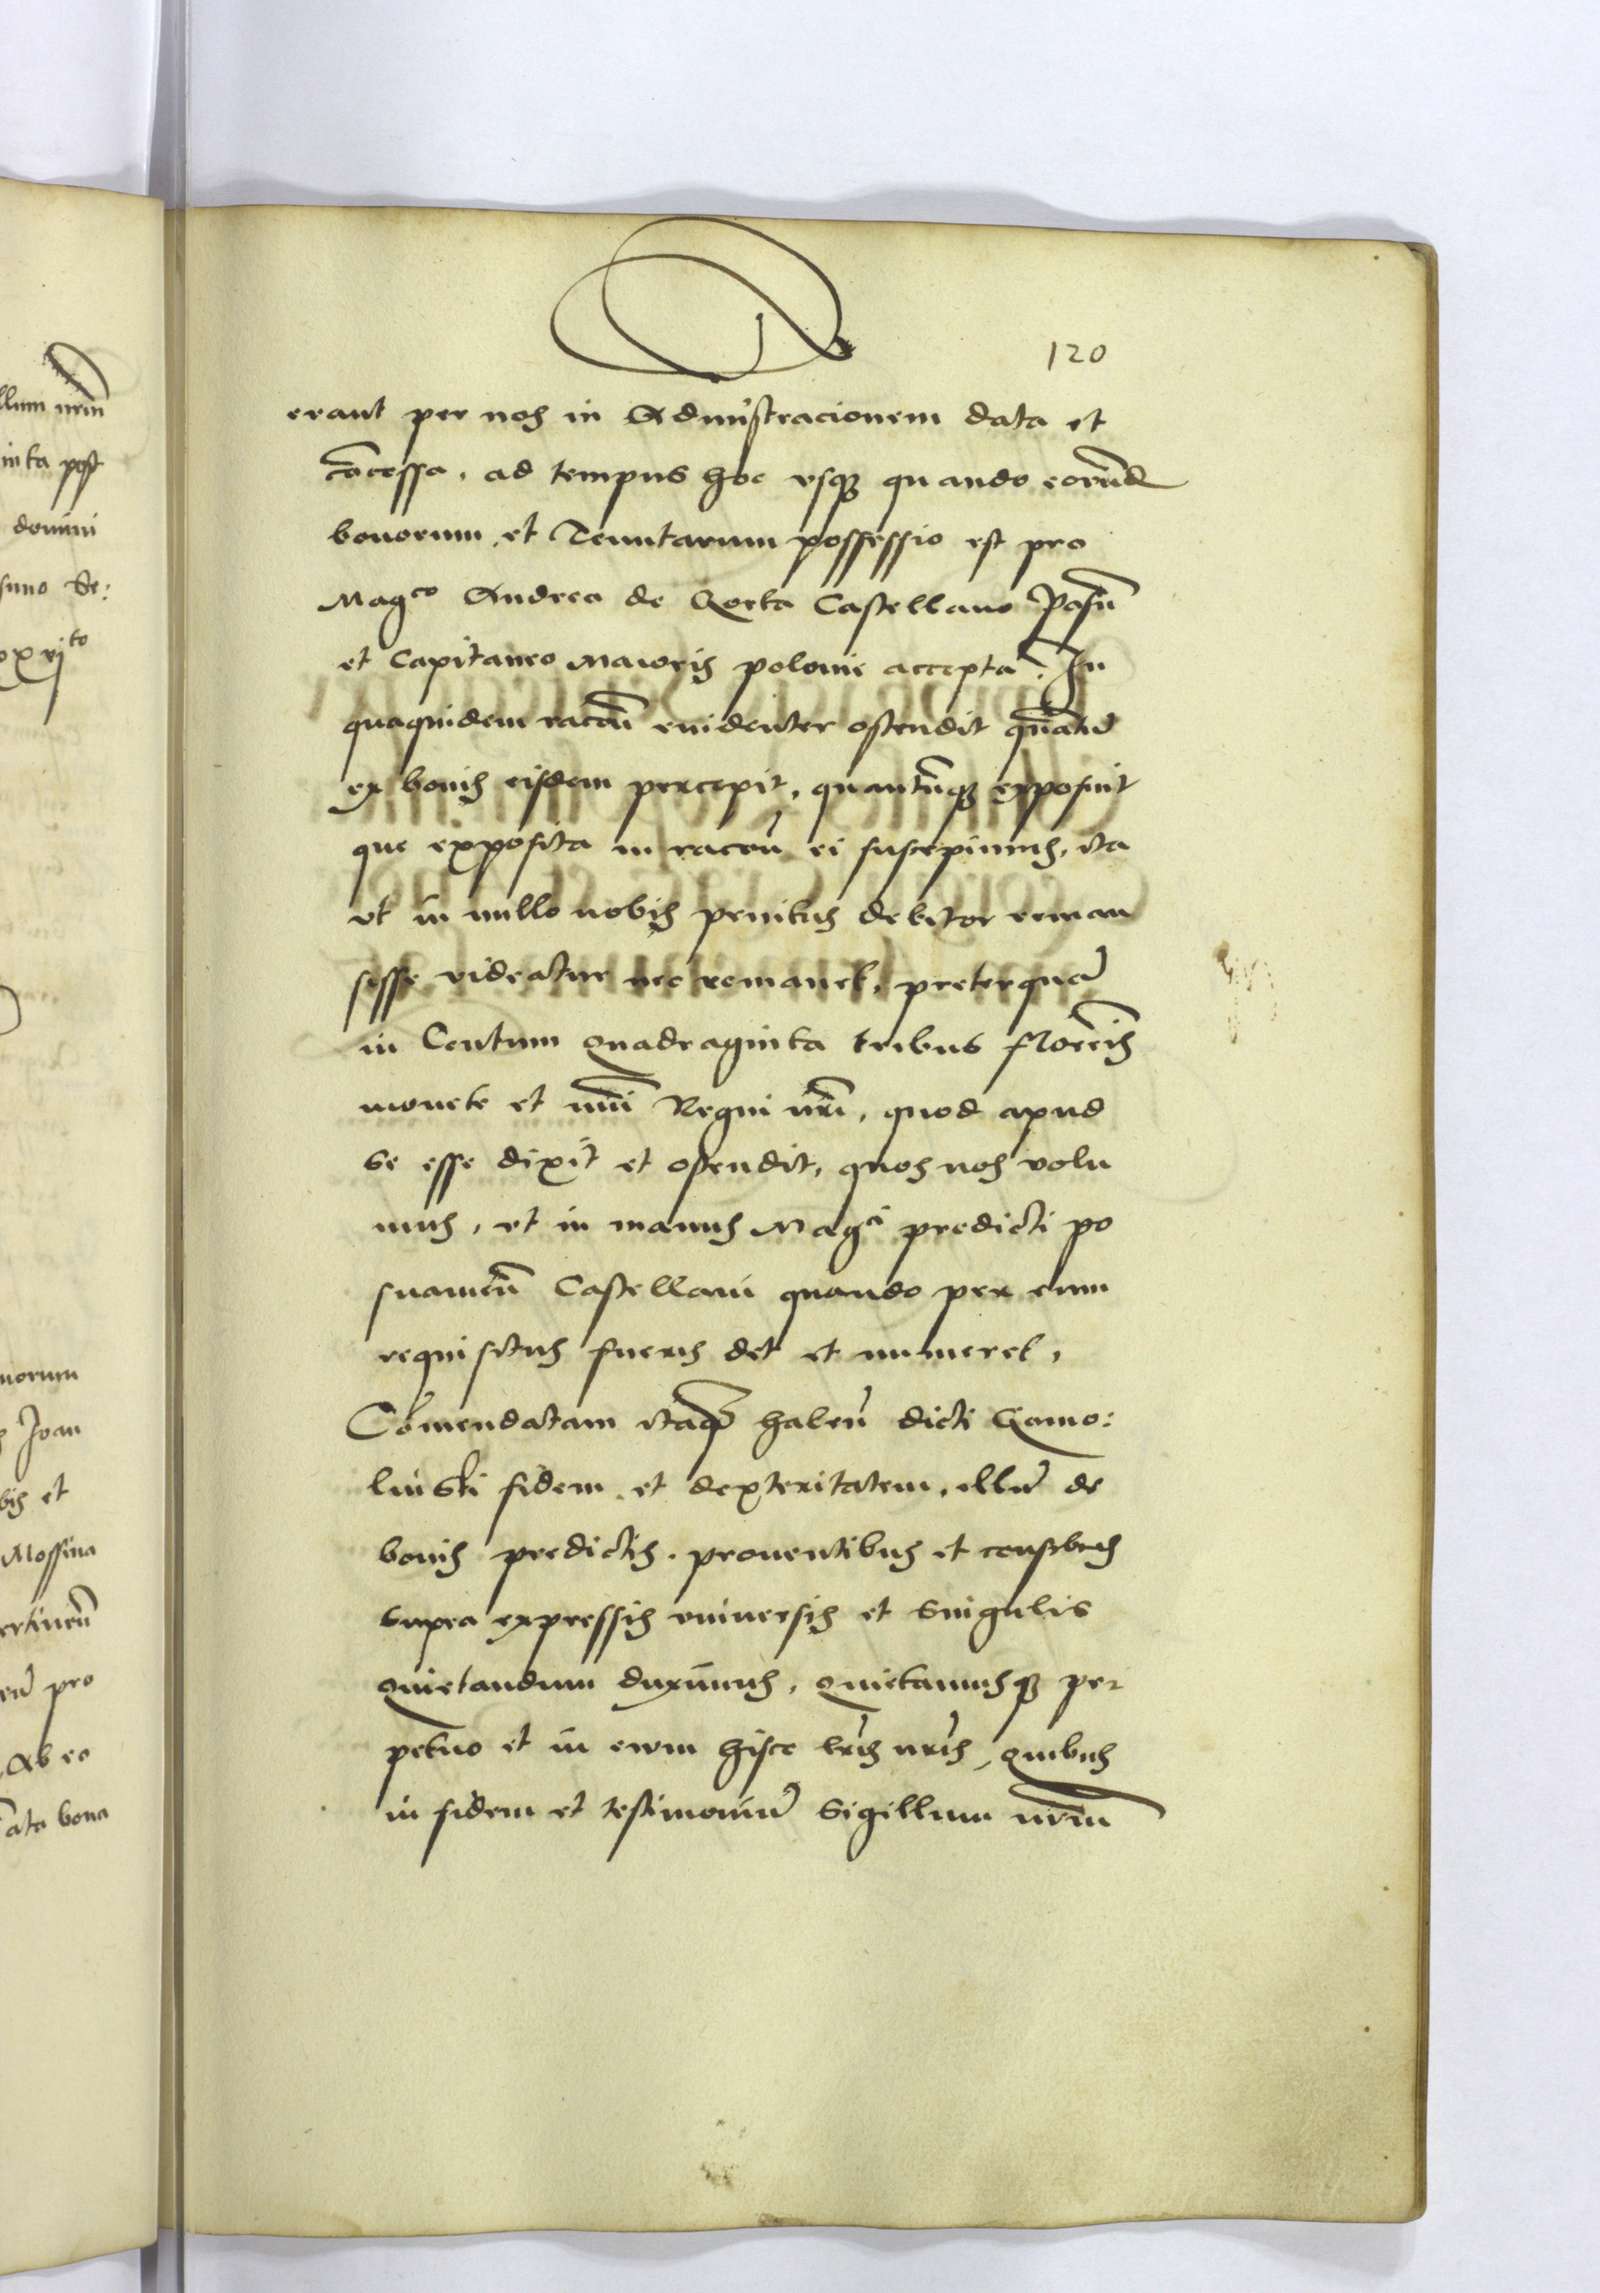 120
erant per nos in Adm̃istracionem data et
cõcessa, ad tempus hoc vsq3 quando eorũd
bonorum et Tenutarum possessio est pro
Magco Andrea de Gorka Castellano Posn̄
et Capitaneo Maioris polonie accepta. In
quaquidem racoñ euidenter ostendit quãtũ
ex bonis eisdem percepit, quantũq3 exposuit
que exposita in racoñ ei suscepimus, ita
vt in nullo nobis penitus debitor reman
sisse videatur nec remanet, preterquã
in Centum quadraginta tribus floreñis
monete et nũi Regni nr̃i, quod apud
se esse dixit et ostendit, quos nos volu
mus, vt in manus Magci predicti po
snanieñ Castellani quando per eum
requisitus fuerit det et numeret,
Cõmendatam itaq3 habeñ dicti Gomo:
linski fidem et dexteritatem, illũ de
bonis predictis, prouentibus et censibus
supra expressis vniuersis et singulis
quietandum duximus, quietamusq3 per
petuo et in ewm hisce lr̃is nr̃is, quibus
in fidem et testimoniũ Sigillum nr̃m
llum nr̃m
inta post
domini
xxvjto
norum
Joan
bis et
Mossina
ertineñ
pro
Ab eo
ata bona